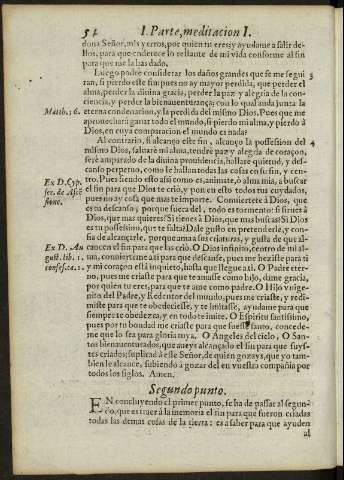 54 I. Parte, meditacion I.
dona Señor, mis yerros, por quien tu eres, y ayudame a salir de-
llos, para que enderece lo restante de mi vida conforme al fin
para que me la has dado.
Luego podrè considerar los daños grandes que se me segui 3
ran, si pierdo este fin, pues no ay mayor perdida, que perder el
alma, perder la divina gracia, perder la paz y alegria de la con-
ciencia, y perder la bienaventurança; con lo qual anda junta la
Matth. 16. eterna condenacion, y la perdida del mismo Dios. Pues que me
aprovecharà ganar todo el mundo, si pierdo mi alma, y pierdo à
Dios, en cuya comparacion el mundo es nada?
Al contrario, si alcanço este fin, alcanço la possession del 4
mismo Dios, salvarè mi alma, tendrè paz y alegria de coraçon,
serè amparado de la divina providencia, hallarè quietud, y des-
canso perpetuo, como le hallan todas las cosas en su fin, y cen-
tro. Pues siendo esto assi como es, animate, ò alma mia, a buscar
Ex D. Cyp. el fin para que Dios te criò, y pon en esto todos tus cuydados,
ser. de Ascē pues no ay cosa que mas te importe. Conviertete à Dios, que
sione. es tu descanso; porque fuera del, todo es tormento: si sirves à
Dios, que mas quieres? Si tienes à Dios, que mas buscas? Si Dios
es tu possession, que te falta? Dale gusto en pretenderle, y con-
fia de alcançarle, porque ama a sus criaturas, y gusta de que al-
Ex D. Au cancen el fin para que las criò. O Dios infinito, centro de mi al-
gust. lib. 1. ma, convierteme a ti para que descanse, pues me heziste para ti
confess. ca. 1. y mi coraçon està inquieto, hasta que llegue a ti. O Padre eter-
no, pues me criaste para que te amasse como hijo, dame gracia,
por quien tu eres, para que te ame como padre. O Hijo vnige-
nito del Padre, y Redentor del mundo, pues me criaste, y redi-
miste para que te obedeciesse, y te imitasse, ayudame para que
siempre te obedezca, y en todo te imite. O Espiritu santissimo,
pues por tu bondad me criaste para que fuesse santo, concede-
me que lo sea para gloria tuya. O Angeles del cielo, O San-
tos bienaventurados, que aveys alcançado el fin para que fuys-
tes criados; suplicad à este Señor, de quien gozays, que yo tam-
bien le alcance, subiendo a gozar del en vuestra compañia por
todos los siglos. Amen.
Segundo punto.
EN concluyendo el primer punto, se ha de passar al segun-
do, que es traer à la memoria el fin para que fueron criadas
todas las demas cosas de la tierra: es a saber para que ayuden
al